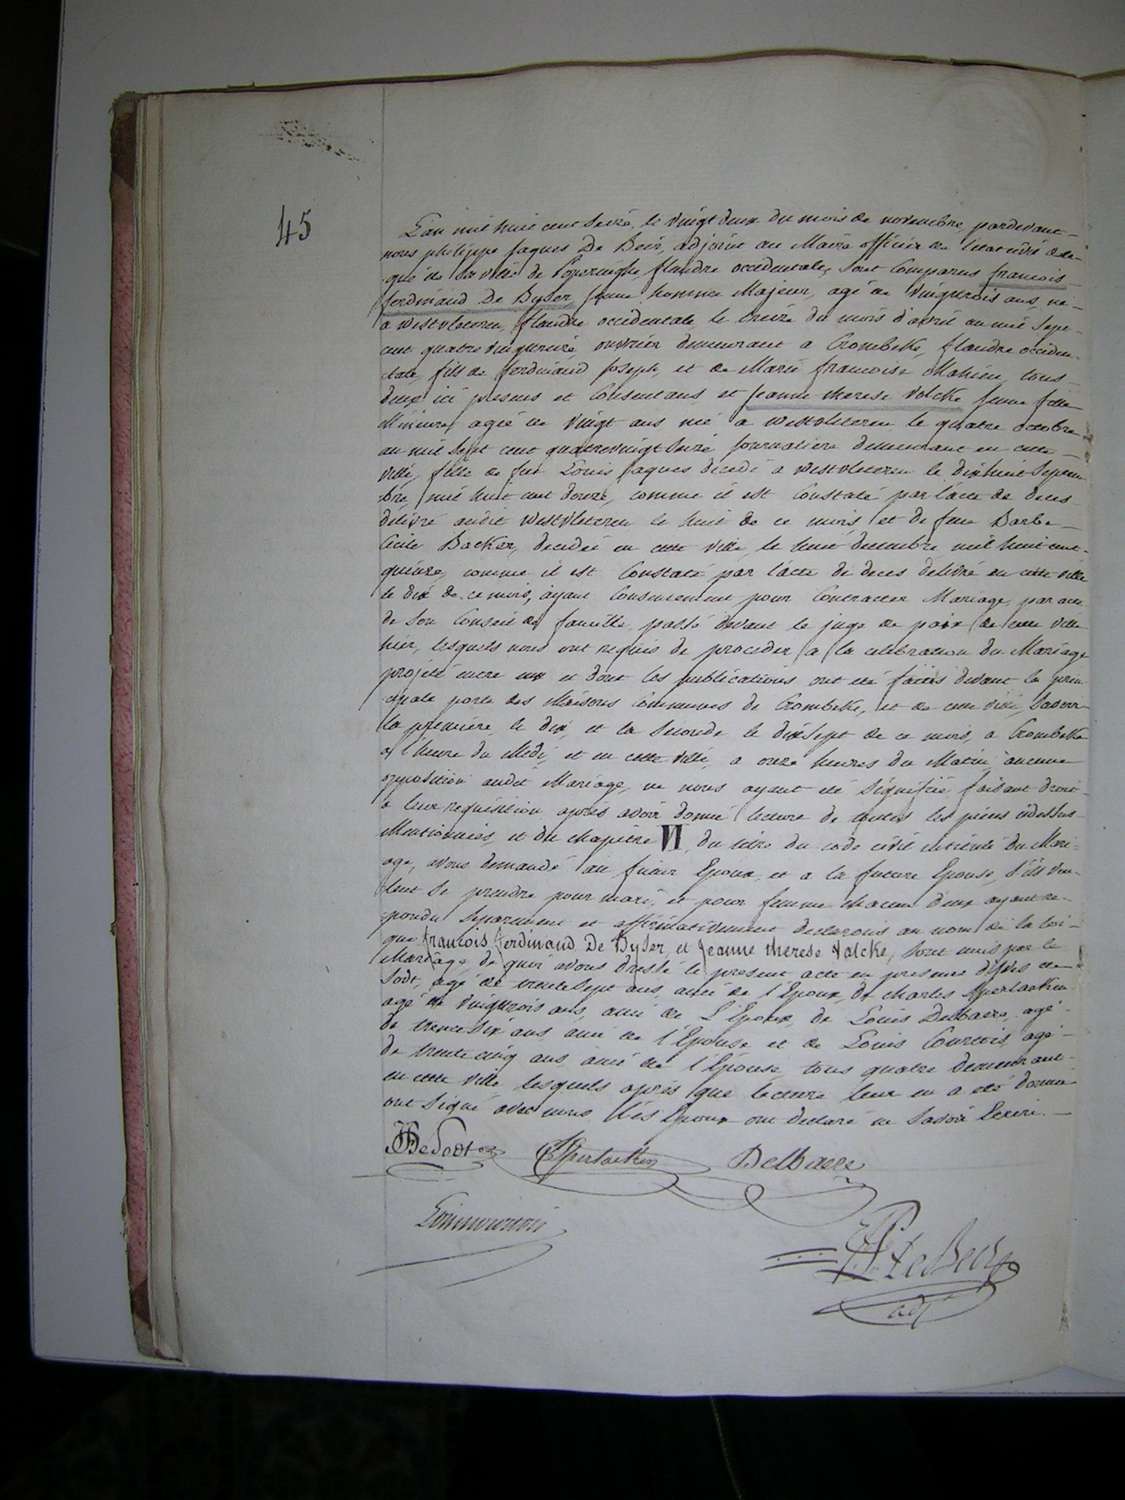 45
L'an mil huit cent seize le vingt deux du mois de novembre, pardevant
nous philippe jaques De Beir, adjoint au Maire officier de l'etat civil delé-
gué de la ville de Poperinghe, flandre occidentale, sont comparus françois
ferdinand De Byser, jeune homme Majeur, agé de vingttrois ans, né
a westvleteren, flandre occidentale le treize du mois d'avril an mil sept
cent quatre vingttreize, ouvrier demeurant a Crombeke, flandre occiden-
tale, fils de ferdinand joseph, et de Marie francoise Mahieu, tous
deux ici presens et Consentans, et jeanne therese Volcke jeune fille
Mineure agée de vingt ans née a westvleteren le quatre octobre
an mil sept cent quatrevingt seize journaliere demeurant en cette
ville, fille de feu Louis jaques décédé a westvleteren le dixhuit septem
bre mil huit cent douze, comme il est Constaté par l'acte de deces
délivré audit westvleteren le huit de ce mois, et de feue Barbe
Cicile Backer, decedée en cette ville, le huit decembre mil huit cent
quinze, comme il est Constaté par l'acte de deces delivré en cette ville
le dix de ce mois, ayant Consentement pour Contracter Mariage par acte
de son Conseil de famille passé devant le juge de paix de cette ville
hier, lesquels nous ont requis de proceder a la celebration du Mariage
projeté entre eux et dont les publications ont été faites devant la prin
cipale porte des Maisons communes de Crombeke, et de cette ville, Savoir
la première le dix, et la seconde le dixsept de ce mois, a Crombeke
a l'heure du Midi, et en cette ville, a onze heures du Matin, aucune
opposition audit Mariage, ne nous ayant été signifiée, faisant droit
a leur requisition après avoir donné lecture de toutes les pieces cidessus
Mentionnées, et du chapitre VI du titre du code civil intitulé du Mari-
age, avons demandé au futur Epoux, et a la future Epouse, s'ils veu-
lent se prendre pour mari, et pour femme chacun d'eux ayant re-
pondu séparement et affirmativement declarons au nom de la loi
que françois ferdinand De Byser, et jeanne therese Volcke, sont unis par le
Mariage, de quoi avons dressé le present acte en presence de
Sodt, agé de trentesept ans, ami de l'Epoux, de charles Spertackin
agé de vingttrois ans, ami de l'Epoux, de Louis Delbaere, agé
de trente six ans ami de l'Epouse et de Louis Courtois agé
de trente cinq ans ami de l'Epouse tous quatre demeurant
en cette ville lesquels après que lecture leur en a été donnée
ont signé avec nous, les Epoux ont declaré ne savoir Ecrire.
Delbaere
P. J. De Beir
adj